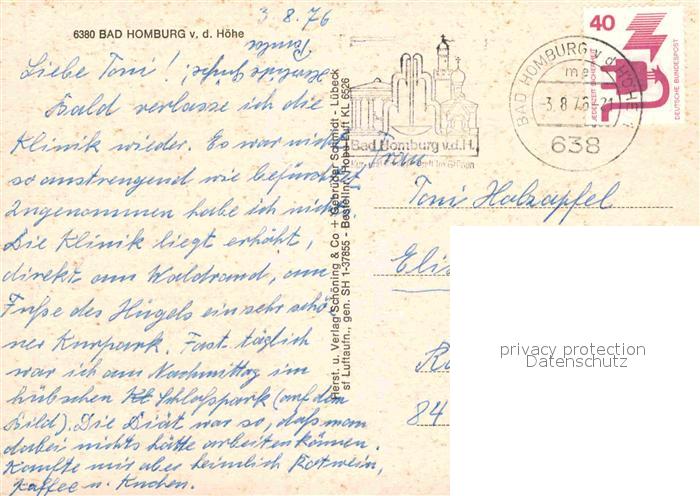 3.8.76
6380 BAD HOMBURG v. d. Höhe
Liebe Toni!
Bald verlasse ich die
Klinik wieder. Es war nicht
so anstrengend wie befürchtet.
Zugenommen habe ich nicht.
Die Klinik liegt erhöht,
direkt am Waldrand, am
Fuße des Hügels ein sehr schö-
ner Kurpark. Fast täglich
war ich am Nachmittag im
hübschen Schloßpark (auf dem
Bild). Die Diät war so, daß man
dabei nichts hätte arbeiten können.
Kaufte mir aber heimlich Rotwein,
Kaffee u. Kuchen.
Herst. u. Verlag Schöning & Co + Gebrüder Schmidt - Lübeck
sf Luftaufn., gen. SH 1-37855 - Bestellnr. Hobg Luft KL 6526
Bad Homburg v.d.H.
BAD HOMBURG v d HÖHE 1
mc
-3.8.76-21
638
40
JEDERZEIT SICHERHEIT
DEUTSCHE BUNDESPOST
Frau
Toni Holzapfel
Elis
84
privacy protection
Datenschutz